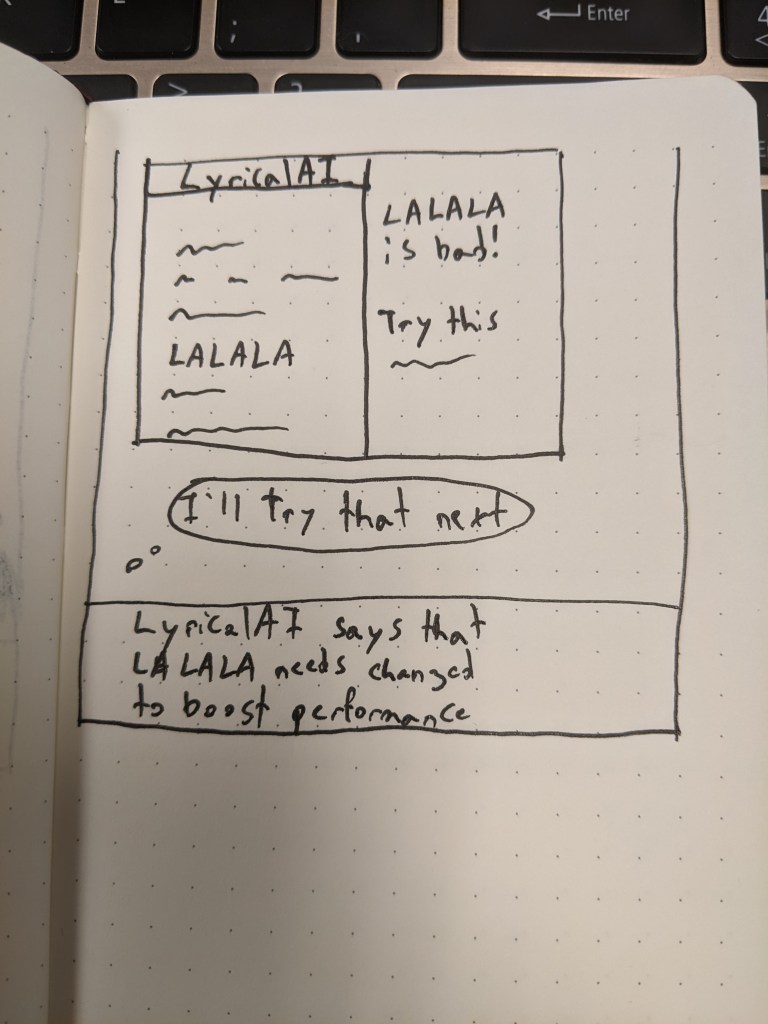 ;
,
Enter
4
>
?
LyricalAI
LALALA
LALALA
is bad!
Try this
I'll try that next
LyricalAI says that
LALALA needs changed
to boost performance